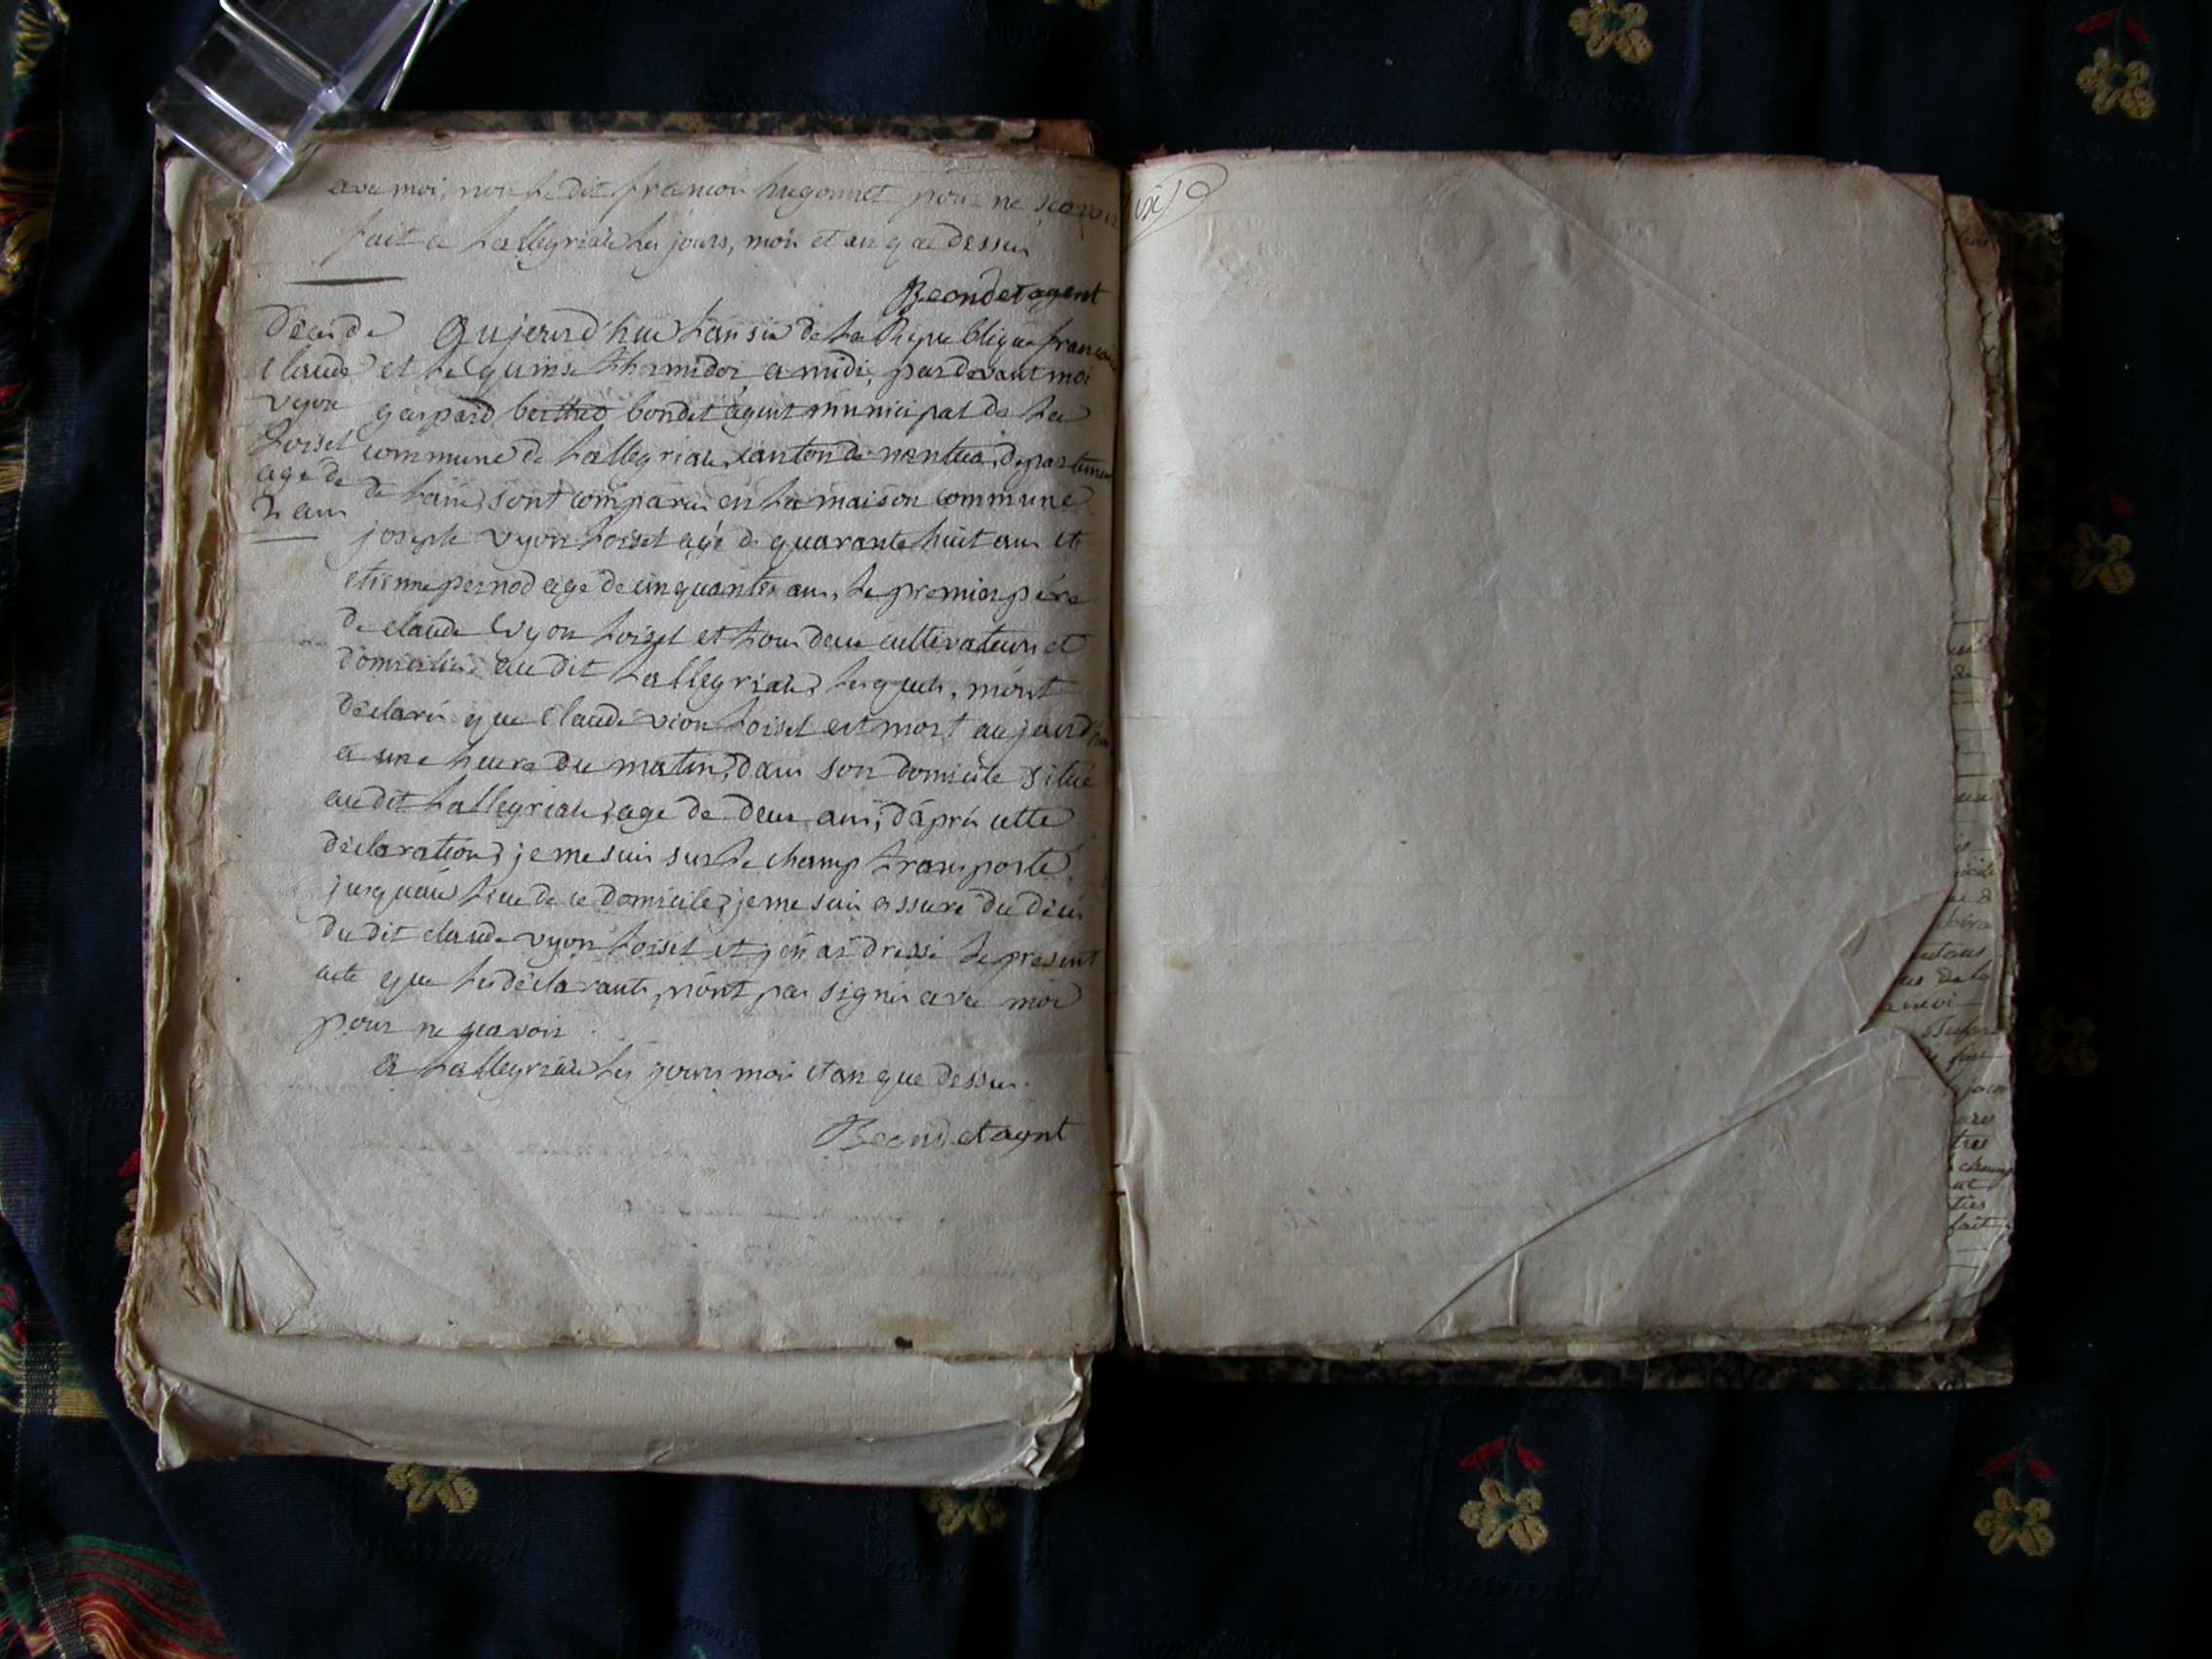 avec moi, non le dit francois hugonnet pour ne scavoir
fait a Lallegriau les jours, mois et an que dessus
Beondet agent
Décés de
Claude
vyon
Loisel
agé de
2 ans
Aujourd'hui Lan six de La Republique francaise
et le quinse thermidor, a midi, pardevant moi
gaspard berthet bondet agent municipal de La
commune de Lallegriau, canton de nantua, departement
de Lain, sont comparus en La maison commune
joseph vyon Loisel agé de quarante huit ans et
etienne pernod agé de cinquante ans, le premier pére
de claude vyon Loisel et tous deux cultivateurs et
domiciliés audit Lallegriau, Lesquels, mont
déclarés que Claude vion Loisel est mort aujourdhui
a une heure du matin, dans son domicile situé
audit Lallegriau, age de deux ans, d'aprés cette
déclaration, je me suis sur le champ transporté
jusquau Lieu de ce domicile, je me suis assuré du décés
du dit claude vyon Loisel et j'en ai dressé le present
acte que les déclarants, n'ont pas signés avec moi
pour ne scavoir.
a Lallegriau les jours mois et an que dessus.
Beondet agent